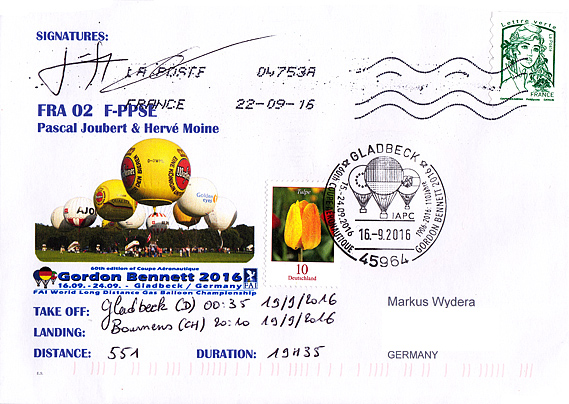 SIGNATURES:
LA POSTE 04753A
FRANCE 22-09-16
Lettre verte
FRANCE
FRA 02 F-PPSE
Pascal Joubert & Hervé Moine
60th edition of Coupe Aéronautique
Gordon Bennett 2016
16.09. - 24.09. - Gladbeck / Germany
FAI World Long Distance Gas Balloon Championship
FAI
Tulpe
10
Deutschland
GLADBECK
IAPC
16.-9.2016
45964
GORDON BENNETT 2016
TAKE OFF: Gladbeck (D) 00:35 19/9/2016
LANDING: Bournens (CH) 20:10 19/9/2016
DISTANCE: 551 DURATION: 19H35
Markus Wydera
GERMANY